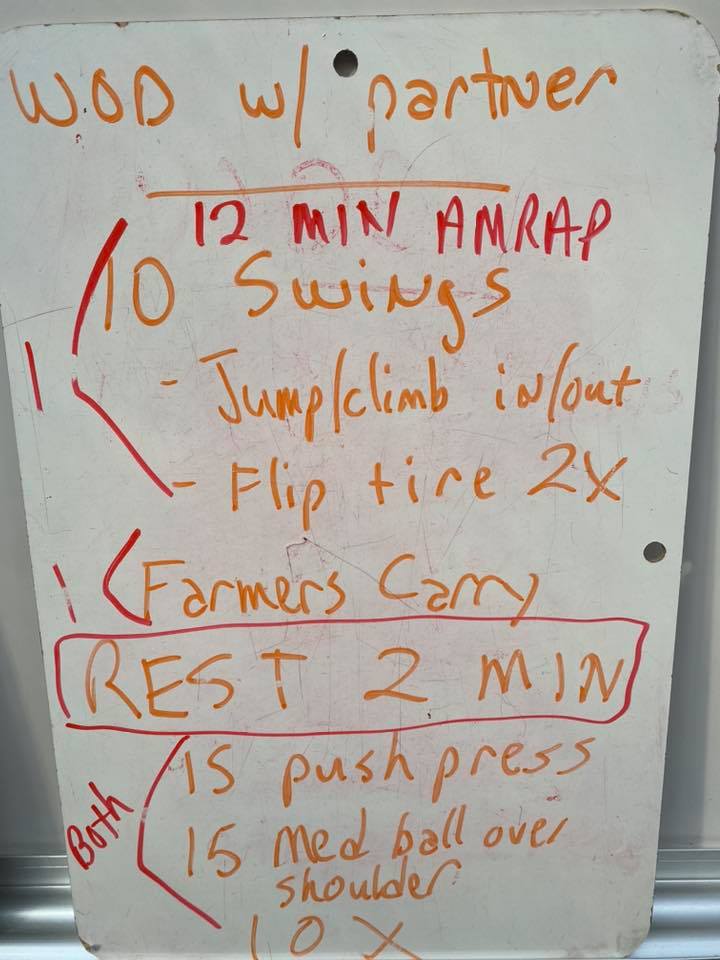 WOD w/ partner
12 MIN AMRAP
10 Swings
1
- Jump/climb in/out
- Flip tire 2X
1 Farmers Carry
REST 2 MIN
Both
15 push press
15 Med ball over
shoulder
10 X